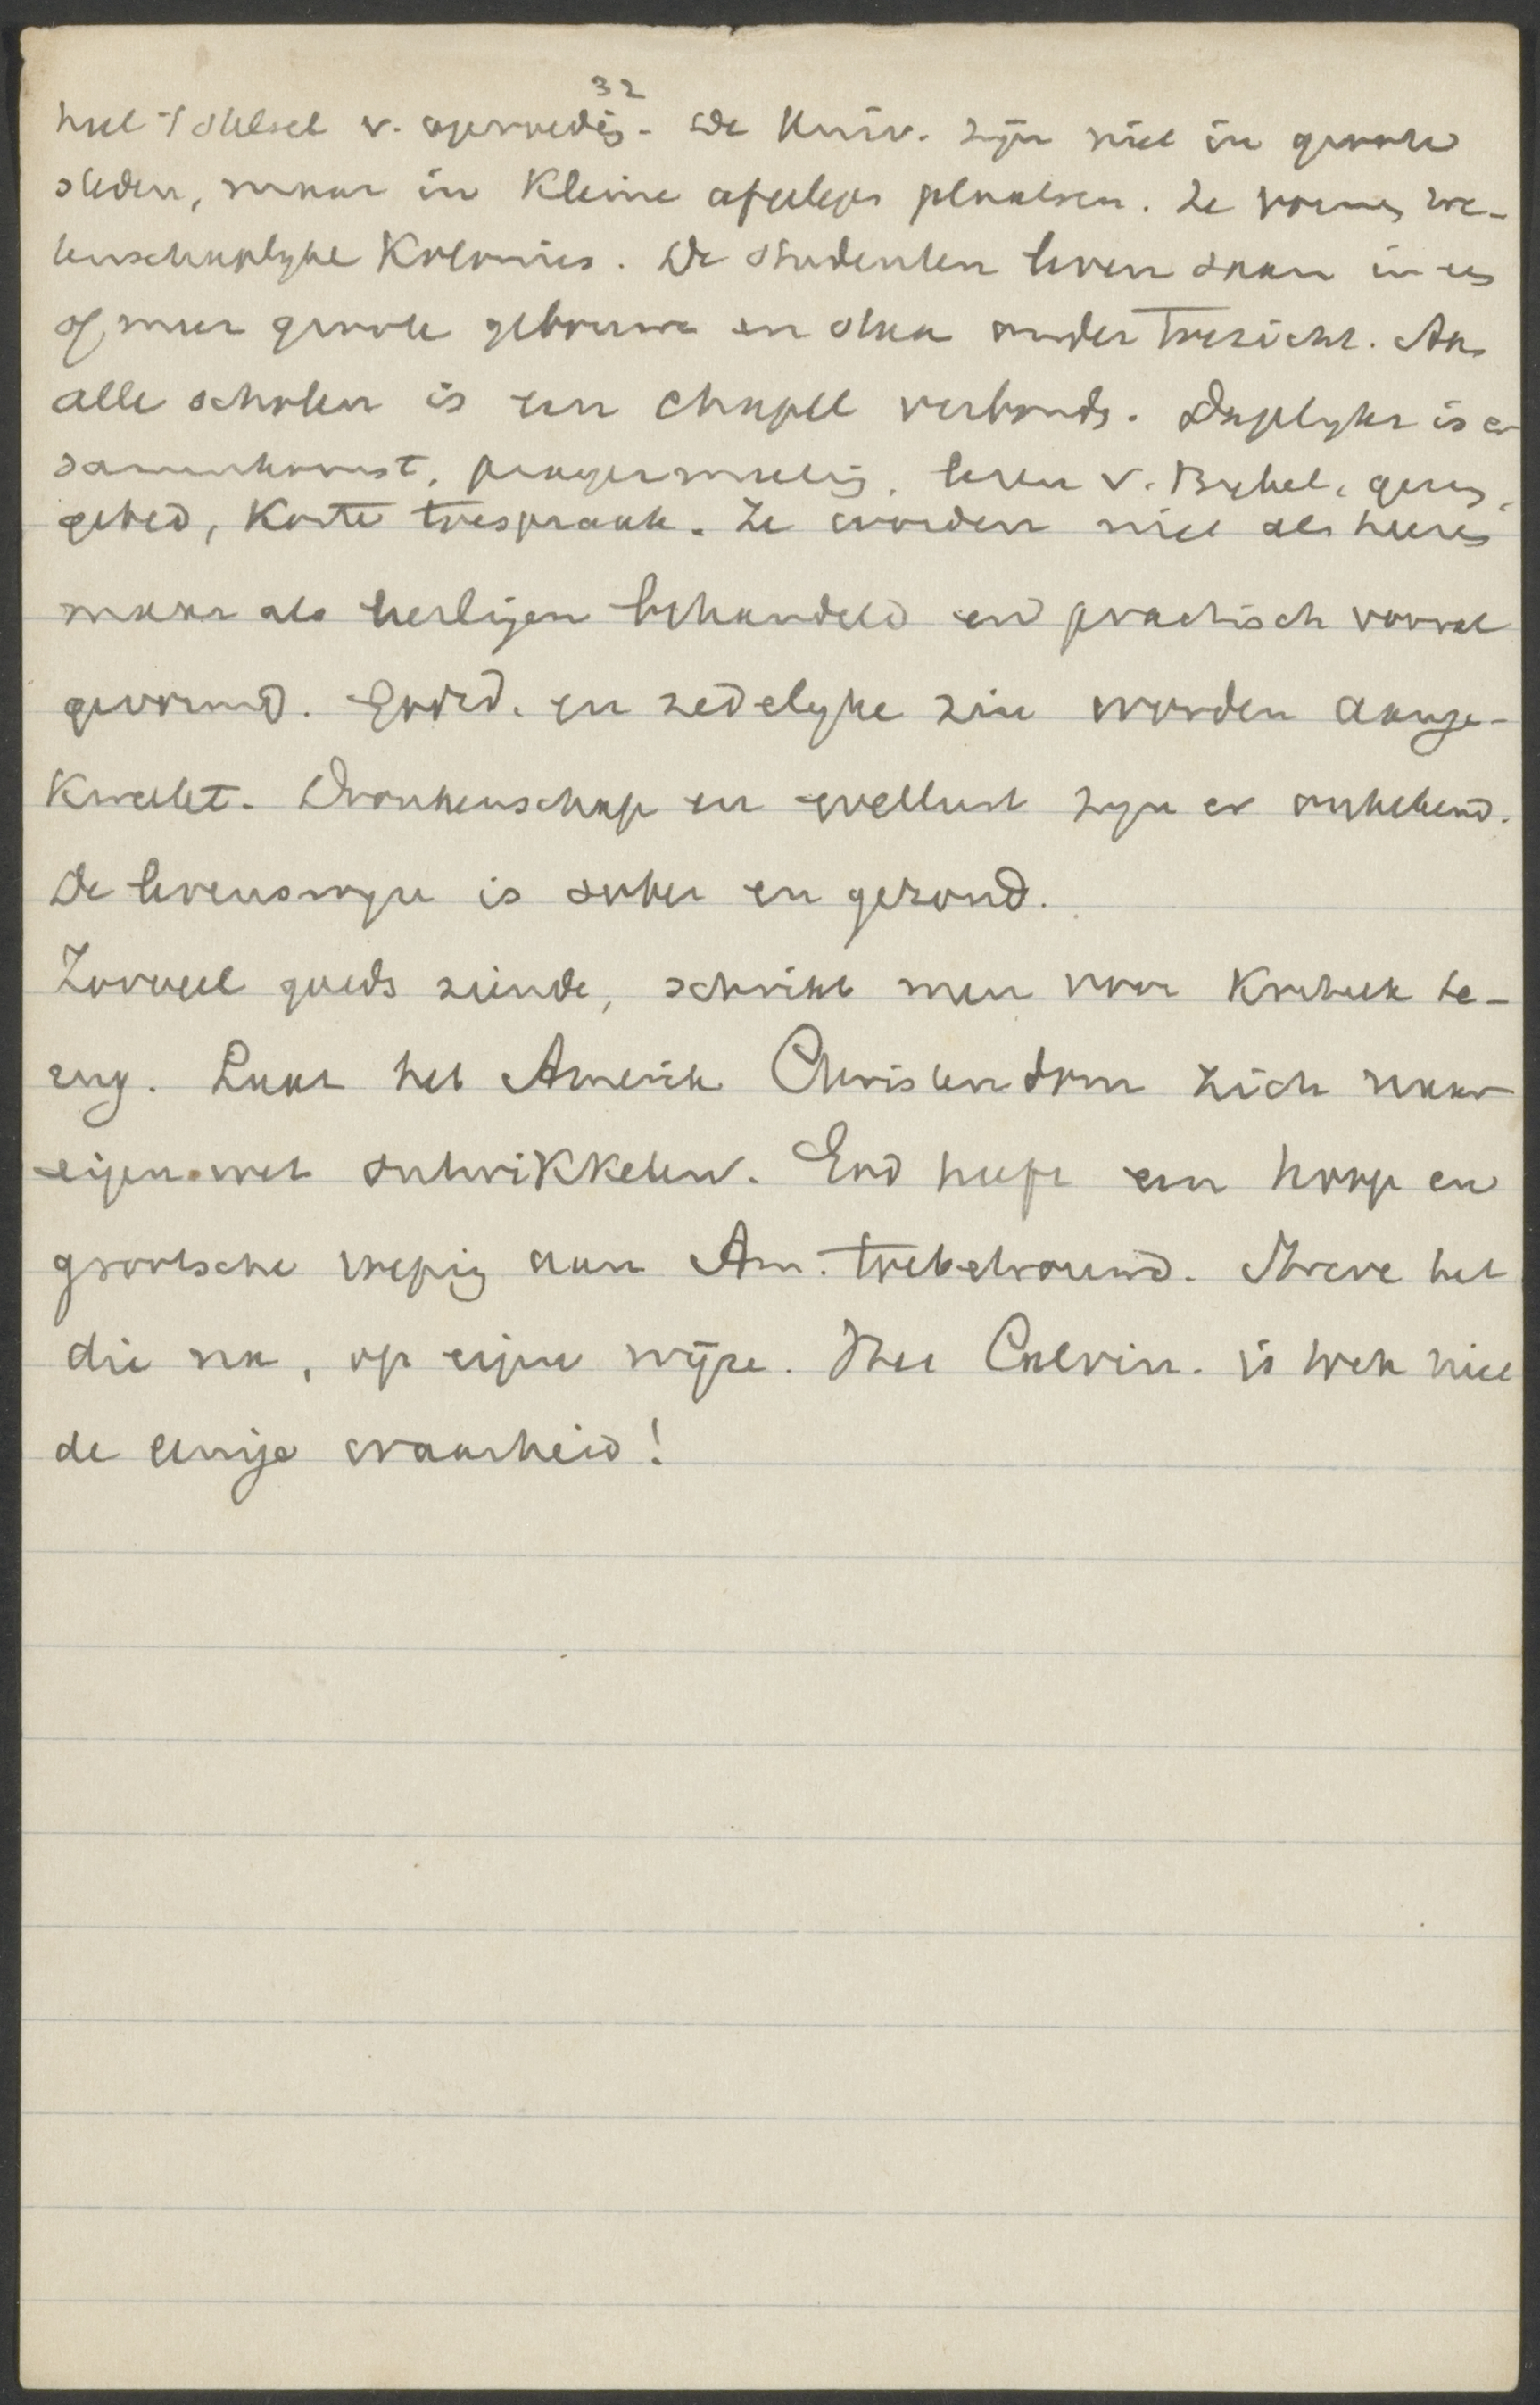 32
heel 't stelsel v. opvoeding. De Univ. zijn niet in groote
steden, maar in kleine afgelegen plaatsen. Ze vormen we-
tenschaplyke Kolonies. De studenten leven saam in een
of meer groote gebouwen en staan onder toezicht. Aan
alle scholen is een chapel verbonden. Dagelyks is er
samenkomst, prayermeeting, lezen v. Bybel, gezang,
gebed, korte toespraak. Ze worden niet als heeren
maar als leerlingen behandeld en practisch vooral
gevormd. Godsd. en zedelyke zin worden aange-
kweekt. Dronkenschap en wellust zyn er onbekend.
De levenswyze is sober en gezond.
Zooveel goeds ziende, schrikt men voor kritiek te-
rug. Laat het Amerik. Christendom zich naar
eigen wet ontwikkelen. God heeft een hooge en
grootsche roeping aan Am. toebetrouwd. Streve het
die na, op eigen wijze. Het Calvin. is toch niet
de eenige waarheid!